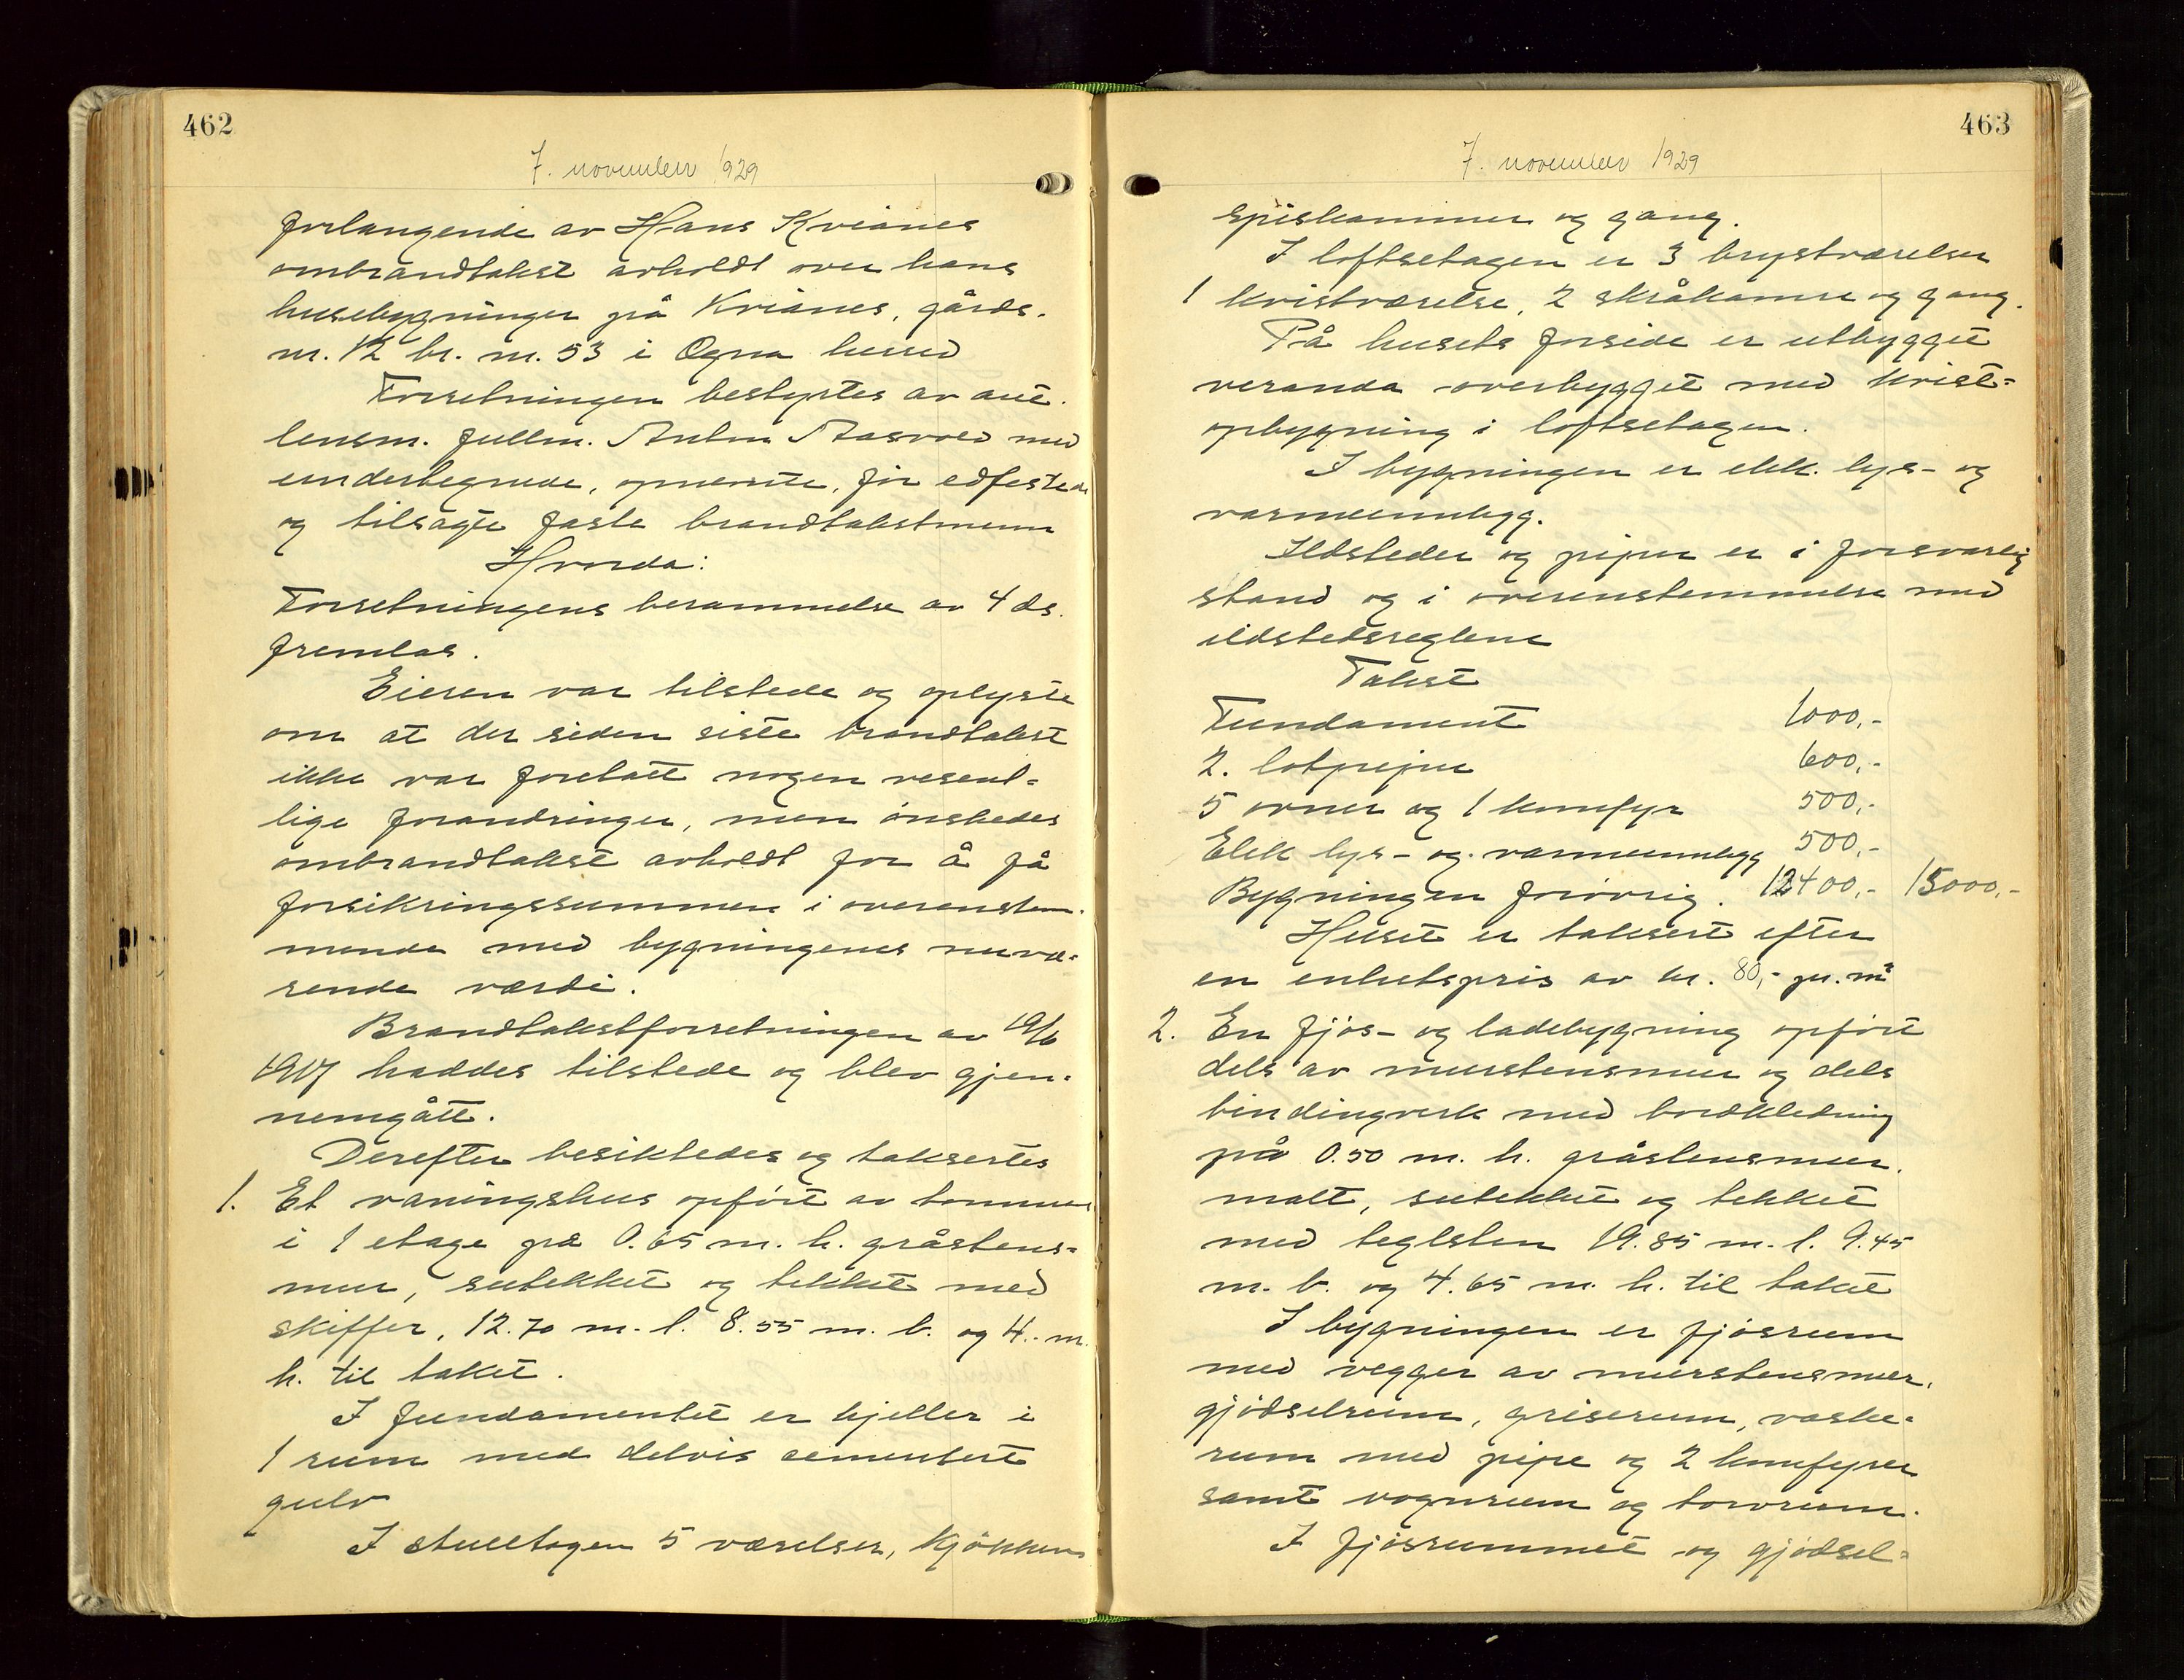 462
7. november 1929
forlangende av Hans Kvianes
ombrandtakst avholdt over hans
husebygninger på Kvianes, gårds-
nr. 12 br. nr. 53 i Ogna herred
Forretningen bestyrtes av aut.
lensm. fullm. Anton Aasvold med
undertegnede, opnevnte, før edfestede
og tilsagte faste brandtakstmenn
Hvorda:
Forretningens berammelse av 4 ds.
fremlas.
Eieren var tilstede og oplyste
om at der siden siste brandtakst
ikke var foretatt nogen vesent-
lige forandringer, men ønskedes
ombrandtakst avholdt for å få
forsikringssummen i overenstem-
mende med bygningenes nuvæ-
rende værdi.
Brandtakstforretningen av 19/6
1917 haddes tilstede og blev gjen-
nemgått.
Derefter besiktedes og taksertes
1. Et våningshus opført av tømmer
i 1 etage på 0.65 m. h. gråstens-
mur, sutekket og tekket med
skiffer, 12.70 m. l. 8.55 m. b. og 4.- m.
h. til taket.
I fundamentet er kjeller i
1 rum med delvis cementert
gulv
I stuetagen 5 værelser, kjøkken
463
7. november 1929
spiskammer og gang.
I loftsetagen er 3 brystværelser
1 kvistværelse, 2 skråkamre og gang.
På husets forside er utbygget
veranda overbygget med kvist-
opbygning i loftsetagen.
I bygningen er elek. lys- og
varmeinnlegg.
Ildsteder og piper er i forsvarlig
stand og i overenstemmelse med
ildstedsreglene
Takst
Fundament 1000,-
2. løtpiper 600,-
5 ovner og 1 komfyr 500,-
Elek lys- og varmeinnlegg 500,-
Bygningen forøvrig. 12400,- 15000,-
Huset er taksert efter
en enhetspris av kr. 80,- pr. m²
2. En fjøs- og ladebygning opført
dels av murstensmur og dels
bindingverk med bordkledning
på 0.50 m. h. gråstensmur.
malt, sutekket og tekket
med teglsten 19.85 m. l. 9.45
m. b. og 4.65 m. h. til taket
I bygningen er fjøsrum
med vegger av murstensmur,
gjødselrum, griserum, vaske-
rum med pipe og 2 komfyrer
samt vognrum og torvrum.
I fjøsrummet og gjødsel-